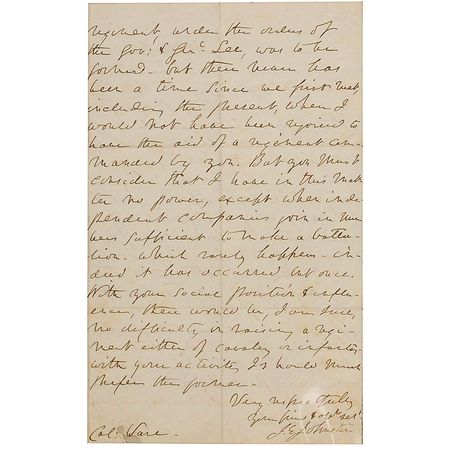 regiment, under the orders of
the Gov! & Gen! Lee, was to be
formed - but there never has
been a time since we first met,
including the present, when I
would not have been rejoiced to
have the aid of a regiment com-
manded by you. But you must
consider that I have in this mat-
ter no power, except when inde-
pendent companies join in num-
bers sufficient to make a batta-
lion - which rarely happens - in-
deed it has occurred but once.
With your social position & influ-
ence, there would be, I am sure,
no difficulty in raising a regi-
ment either of cavalry or infantry -
with your activity I should much
prefer the former.
Very respectfully
Your friend & obt. servt.
J. E. Johnston
Col. Ware -